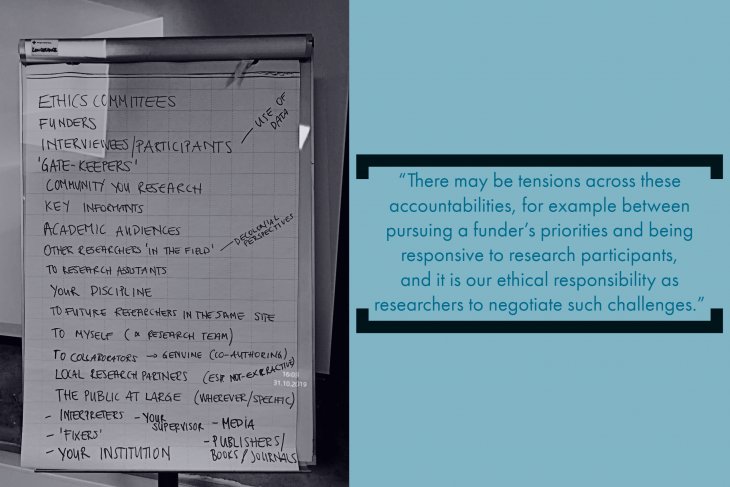 ETHICS COMMITTEES
FUNDERS
INTERVIEWEES/PARTICIPANTS — USE OF DATA
'GATE-KEEPERS'
COMMUNITY YOU RESEARCH
KEY INFORMANTS
ACADEMIC AUDIENCES
OTHER RESEARCHERS 'IN THE FIELD' — DECOLONIAL PERSPECTIVES
TO RESEARCH ASSISTANTS
YOUR DISCIPLINE
TO FUTURE RESEARCHERS IN THE SAME SITE
TO MYSELF (& RESEARCH TEAM)
TO COLLABORATORS → GENUINE (CO-AUTHORING)
LOCAL RESEARCH PARTNERS (ESP. NOT-EXTRACTIVE)
16:09
31.10.2019
THE PUBLIC AT LARGE (WHEREVER/SPECIFIC)
- INTERPRETERS - YOUR SUPERVISOR - MEDIA
- 'FIXERS'
- YOUR INSTITUTION - PUBLISHERS/
BOOKS/JOURNALS
“There may be tensions across these
accountabilities, for example between
pursuing a funder’s priorities and being
responsive to research participants,
and it is our ethical responsibility as
researchers to negotiate such challenges.”